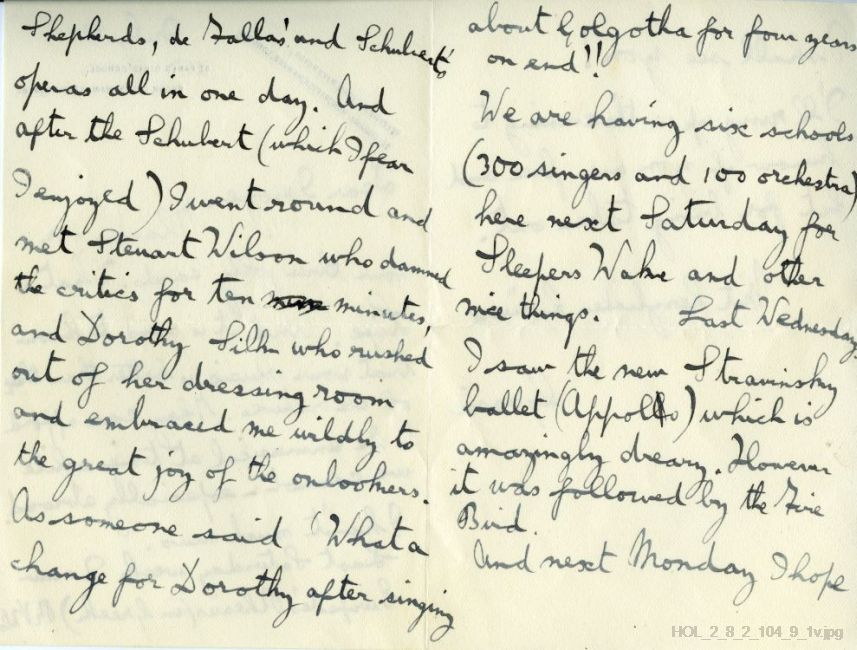 Shepherds, de Fallas' and Schubert's
operas all in one day. And
after the Schubert (which I fear
I enjoyed) I went round and
met Steuart Wilson who damned
the critics for ten minutes,
and Dorothy Silk who rushed
out of her dressing room
and embraced me wildly to
the great joy of the onlookers.
As someone said 'What a
change for Dorothy after singing
about Golgotha for four years
on end'!!
We are having six schools
(300 singers and 100 orchestra)
here next Saturday for
Sleepers Wake and other
nice things. Last Wednesday
I saw the new Stravinsky
ballet (Appollo) which is
amazingly dreary. However
it was followed by the Fire
Bird.
And next Monday I hope
HOL_2_8_2_104_9_1v.jpg